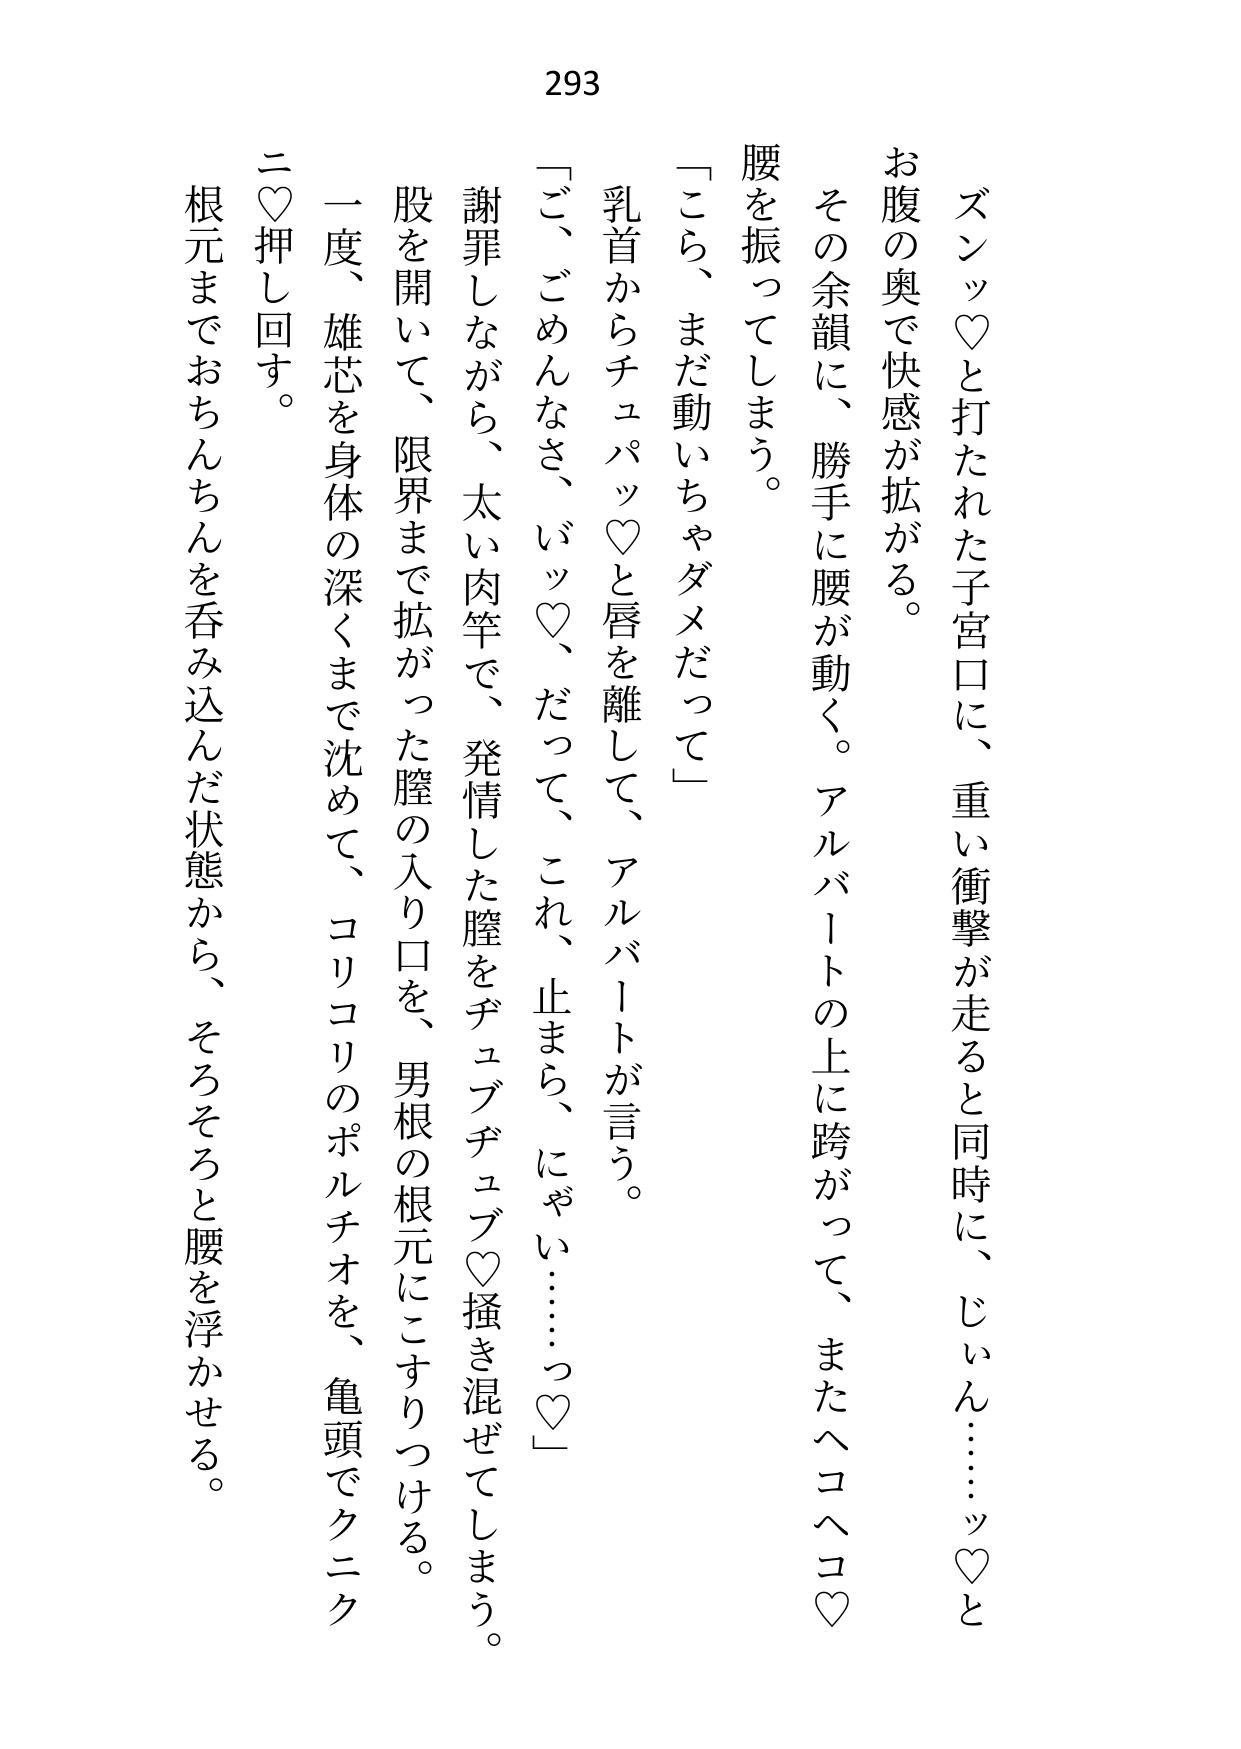 293
ズンッ♡と打たれた子宮口に、重い衝撃が走ると同時に、じぃん……ッ♡と
お腹の奥で快感が拡がる。
その余韻に、勝手に腰が動く。アルバートの上に跨がって、またヘコヘコ♡
腰を振ってしまう。
「こら、まだ動いちゃダメだって」
乳首からチュパッ♡と唇を離して、アルバートが言う。
「ご、ごめんなさ、い゙ッ♡、だって、これ、止まら、にゃい……っ♡」
謝罪しながら、太い肉竿で、発情した膣をヂュブヂュブ♡掻き混ぜてしまう。
股を開いて、限界まで拡がった膣の入り口を、男根の根元にこすりつける。
一度、雄芯を身体の深くまで沈めて、コリコリのポルチオを、亀頭でクニク
ニ♡押し回す。
根元までおちんちんを呑み込んだ状態から、そろそろと腰を浮かせる。